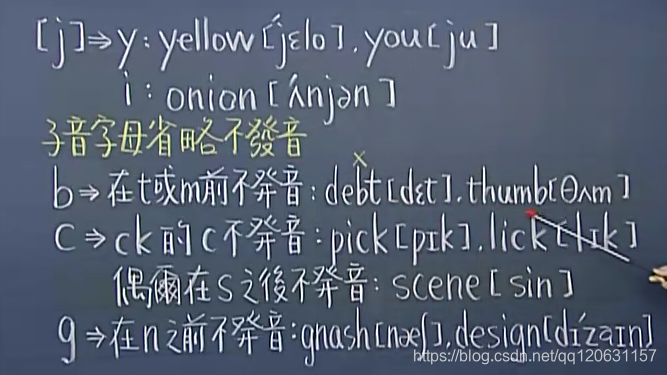 [j]⇒y:yellow[ˊjɛlo].you[ju]
i:onion[ˊʌnjən]
子音字母省略不發音
x
b⇒在t或m前不発音:debt[dɛt].thumb[θʌm]
C⇒ck的c不発音:pick[pɪk].lick[lɪk]
偶爾在s之後不発音:scene[sin]
g⇒在n之前不発音:gnash[næʃ].design[dɪˊzaɪn]
https://blog.csdn.net/qq120631157